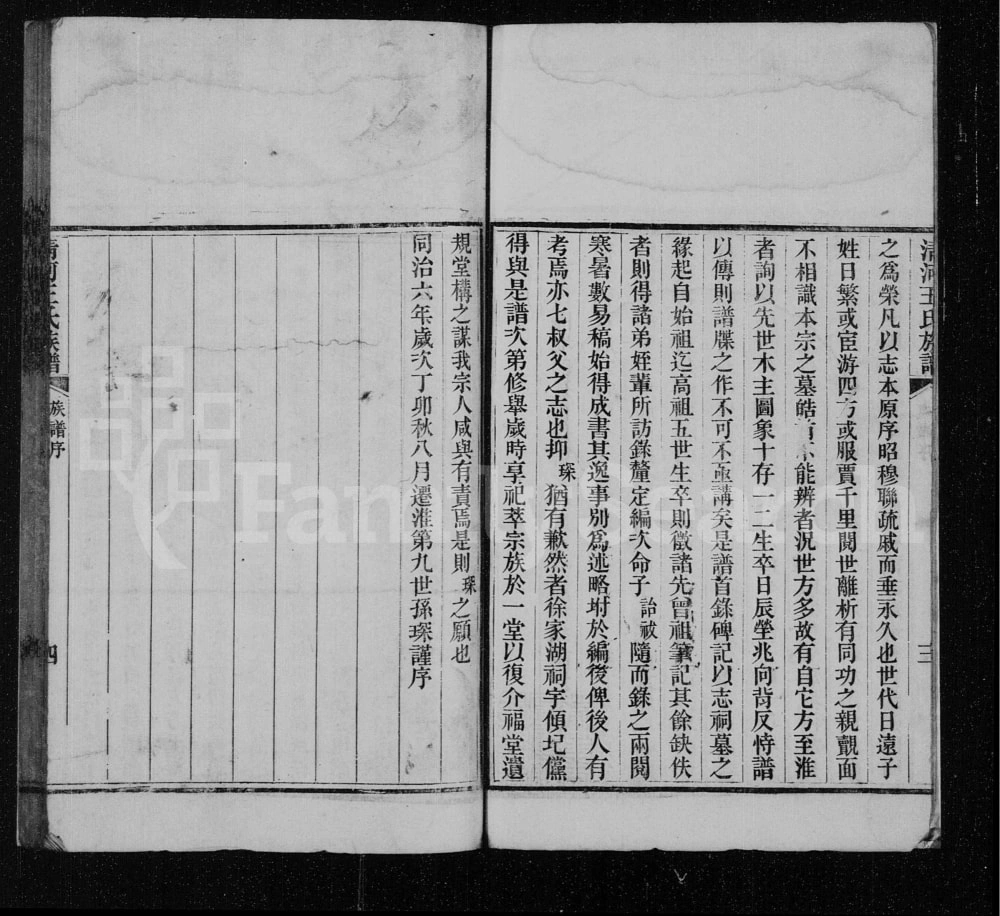 清河王氏族譜
三
之爲榮凡以志本原序昭穆聯疏戚而垂永久也世代日遠子
姓日繁或宦游四方或服賈千里閱世離析有同功之親覿面
不相識本宗之墓皓首不能辨者況世方多故有自它方至淮
者詢以先世木主圖象十存一二生卒日辰塋兆向背反恃譜
以傳則譜牒之作不可不亟講矣是譜首錄碑記以志祠墓之
緣起自始祖迄高祖五世生卒則徵諸先曾祖筆記其餘缺佚
者則得諸弟姪輩所訪錄釐定編次命子詒祓隨而錄之兩閱
寒暑數易稿始得成書其逸事別爲述略坿於編後俾後人有
考焉亦七叔父之志也抑琛猶有歉然者徐家湖祠宇傾圮儻
得與是譜次第修舉歲時享祀萃宗族於一堂以復介福堂遺
規堂構之謀我宗人咸與有責焉是則琛之願也
同治六年歲次丁卯秋八月遷淮第九世孫琛謹序
清河王氏族譜
族譜序
四
FamilySearch